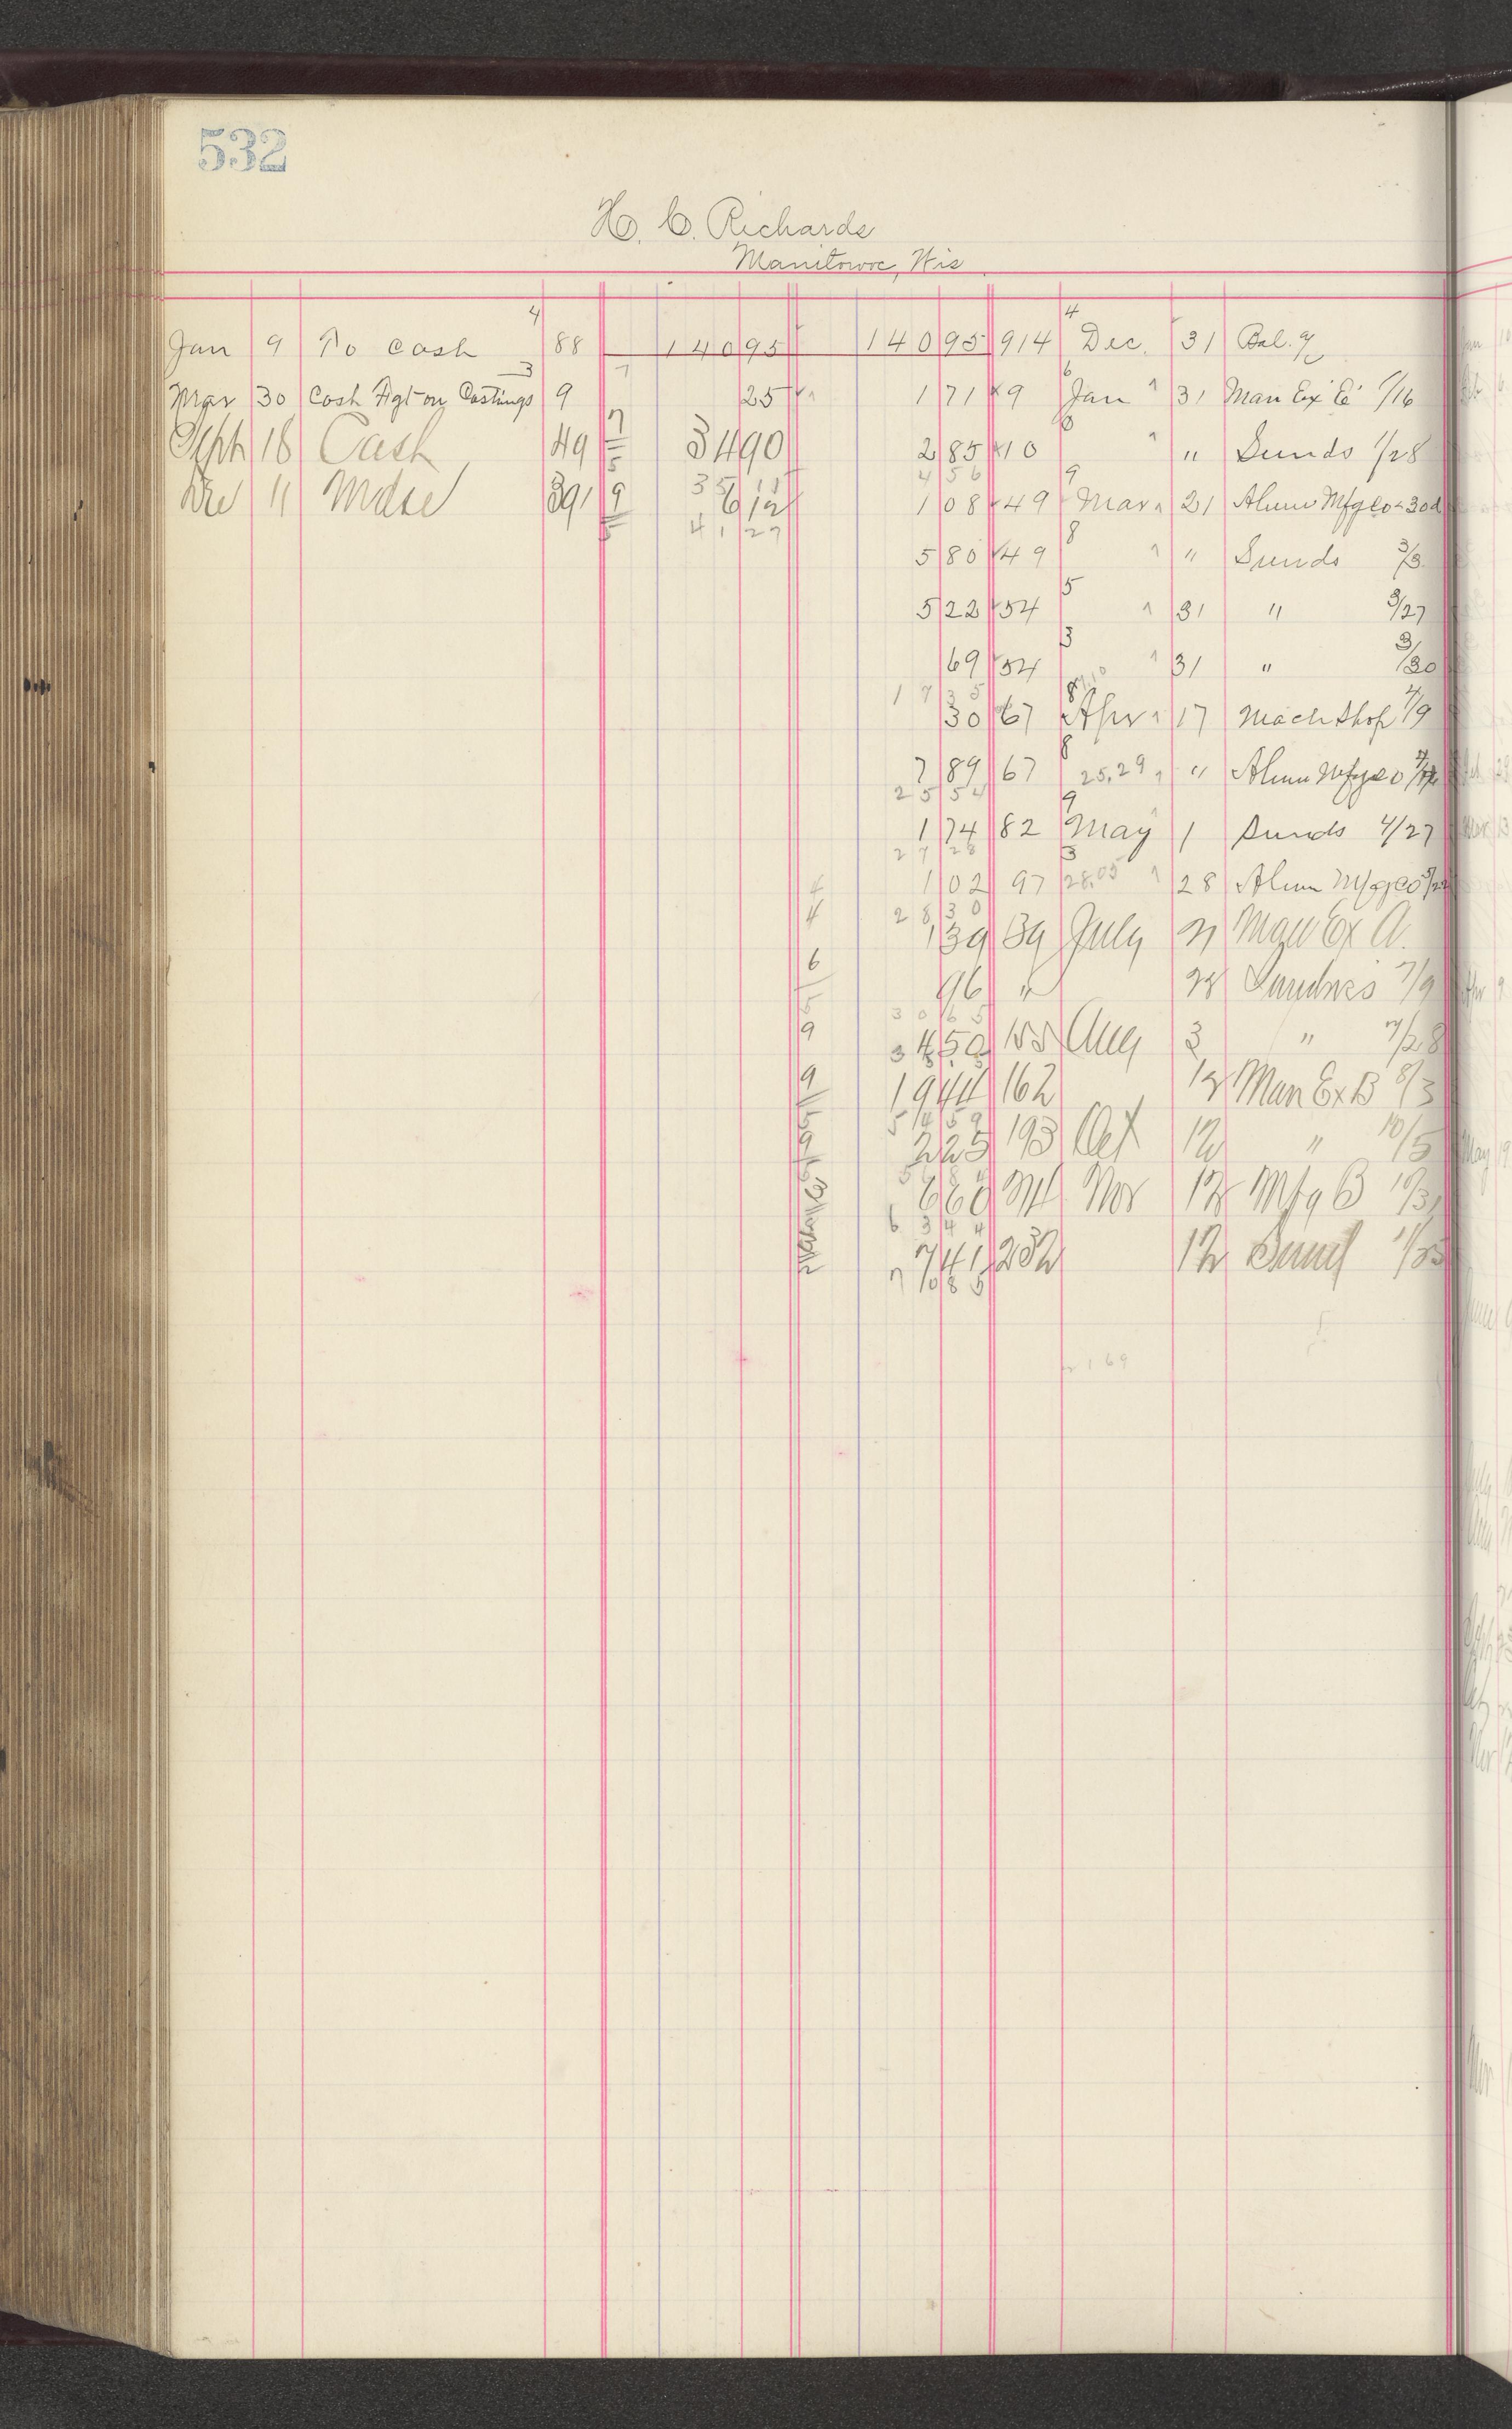 532
H. C. Richards
Manitowoc, Wis
4 4
Jan 9 To Cash 88 140 95 140 95 914 Dec. 31 Bal. %
3 7 6
Mar 30 Cash Frgt on Castings 9 25 1 71 9 Jan 31 Man Ex E 1/16
7 6
Sept 18 Cash 49 34 90 2 85 10 " Sunds 1/28
5 35 15 4 56 9
Dec 11 Mdse 391 9 6 12 1 08 49 Mar 21 Alum Mfg Co - 30d
41 27 8
5 80 49 " Sunds 3/3
5
5 22 54 31 " 3/27
3
69 54 31 " 3/30
17 35 8
30 67 Apr 17 Mach Shop 4/9
8
7 89 67 25.29 " Alum Mfg Co
25 54 9
1 74 82 May 1 Sunds 4/27
27 28 3
4 1 02 97 28.05 28 Alum Mfg Co
4 28 30
1 39 39 July 21 Man Ex A.
6
96 " 28 Sundries 7/9
5 30 65
9 4 50 155 Aug 3 " 7/28
9 19 44 162 12 Man Ex B 8/3
51 59
2 25 193 Oct 12 " 10/5
6 60 Nov 12 Mfg B 10/31
63 44
7 41 232 12 Sund
70 85
169